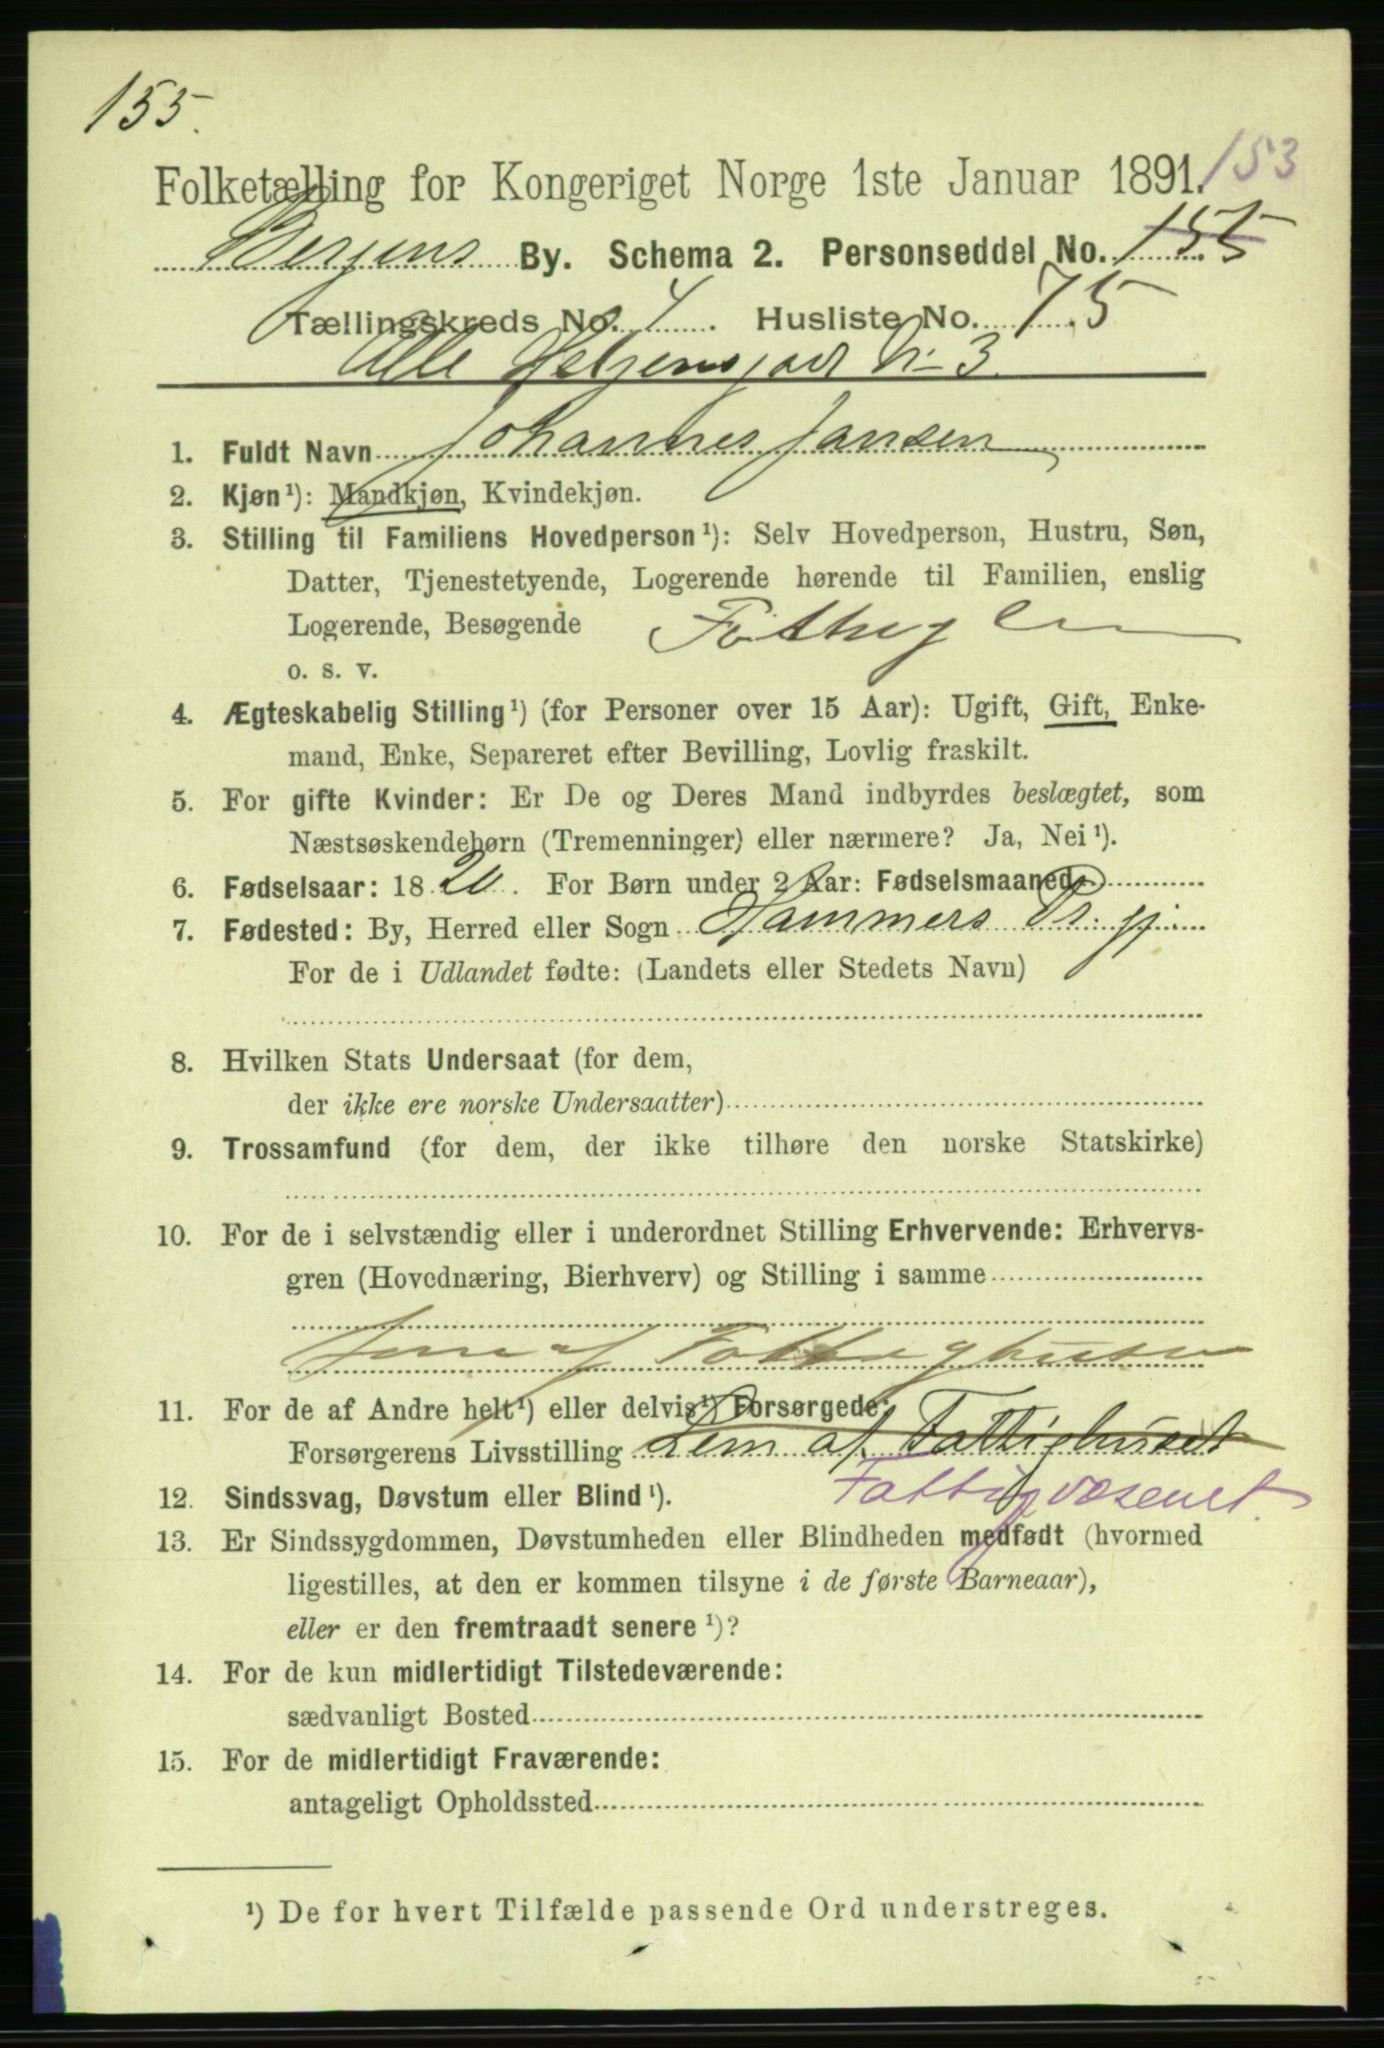 155.
Folketælling for Kongeriget Norge 1ste Januar 1891. 153
Bergens By. Schema 2. Personseddel No. 155
Tællingskreds No. 4. Husliste No. 75
Alle Helgensgade No 3.
1. Fuldt Navn Johannes Jansen
2. Kjøn¹): Mandkjøn, Kvindekjøn.
3. Stilling til Familiens Hovedperson¹): Selv Hovedperson, Hustru, Søn,
Datter, Tjenestetyende, Logerende hørende til Familien, enslig
Logerende, Besøgende Fattiglem
o. s. v.
4. Ægteskabelig Stilling¹) (for Personer over 15 Aar): Ugift, Gift, Enke-
mand, Enke, Separeret efter Bevilling, Lovlig fraskilt.
5. For gifte Kvinder: Er De og Deres Mand indbyrdes beslægtet, som
Næstsøskendebørn (Tremenninger) eller nærmere? Ja, Nei¹).
6. Fødselsaar: 1820. For Børn under 2 Aar: Fødselsmaaned
7. Fødested: By, Herred eller Sogn Hammers Pr. gj.
For de i Udlandet fødte: (Landets eller Stedets Navn)
8. Hvilken Stats Undersaat (for dem,
der ikke ere norske Undersaatter)
9. Trossamfund (for dem, der ikke tilhøre den norske Statskirke)
10. For de i selvstændig eller i underordnet Stilling Erhvervende: Erhvervs-
gren (Hovednæring, Bierhverv) og Stilling i samme
Lem af Fattighuset
11. For de af Andre helt¹) eller delvis¹) Forsørgede:
Forsørgerens Livsstilling Lem af Fattighuset
12. Sindssvag, Døvstum eller Blind¹). Fattigvæsenet.
13. Er Sindssygdommen, Døvstumheden eller Blindheden medfødt (hvormed
ligestilles, at den er kommen tilsyne i de første Barneaar),
eller er den fremtraadt senere¹)?
14. For de kun midlertidigt Tilstedeværende:
sædvanligt Bosted
15. For de midlertidigt Fraværende:
antageligt Opholdssted
¹) De for hvert Tilfælde passende Ord understreges.